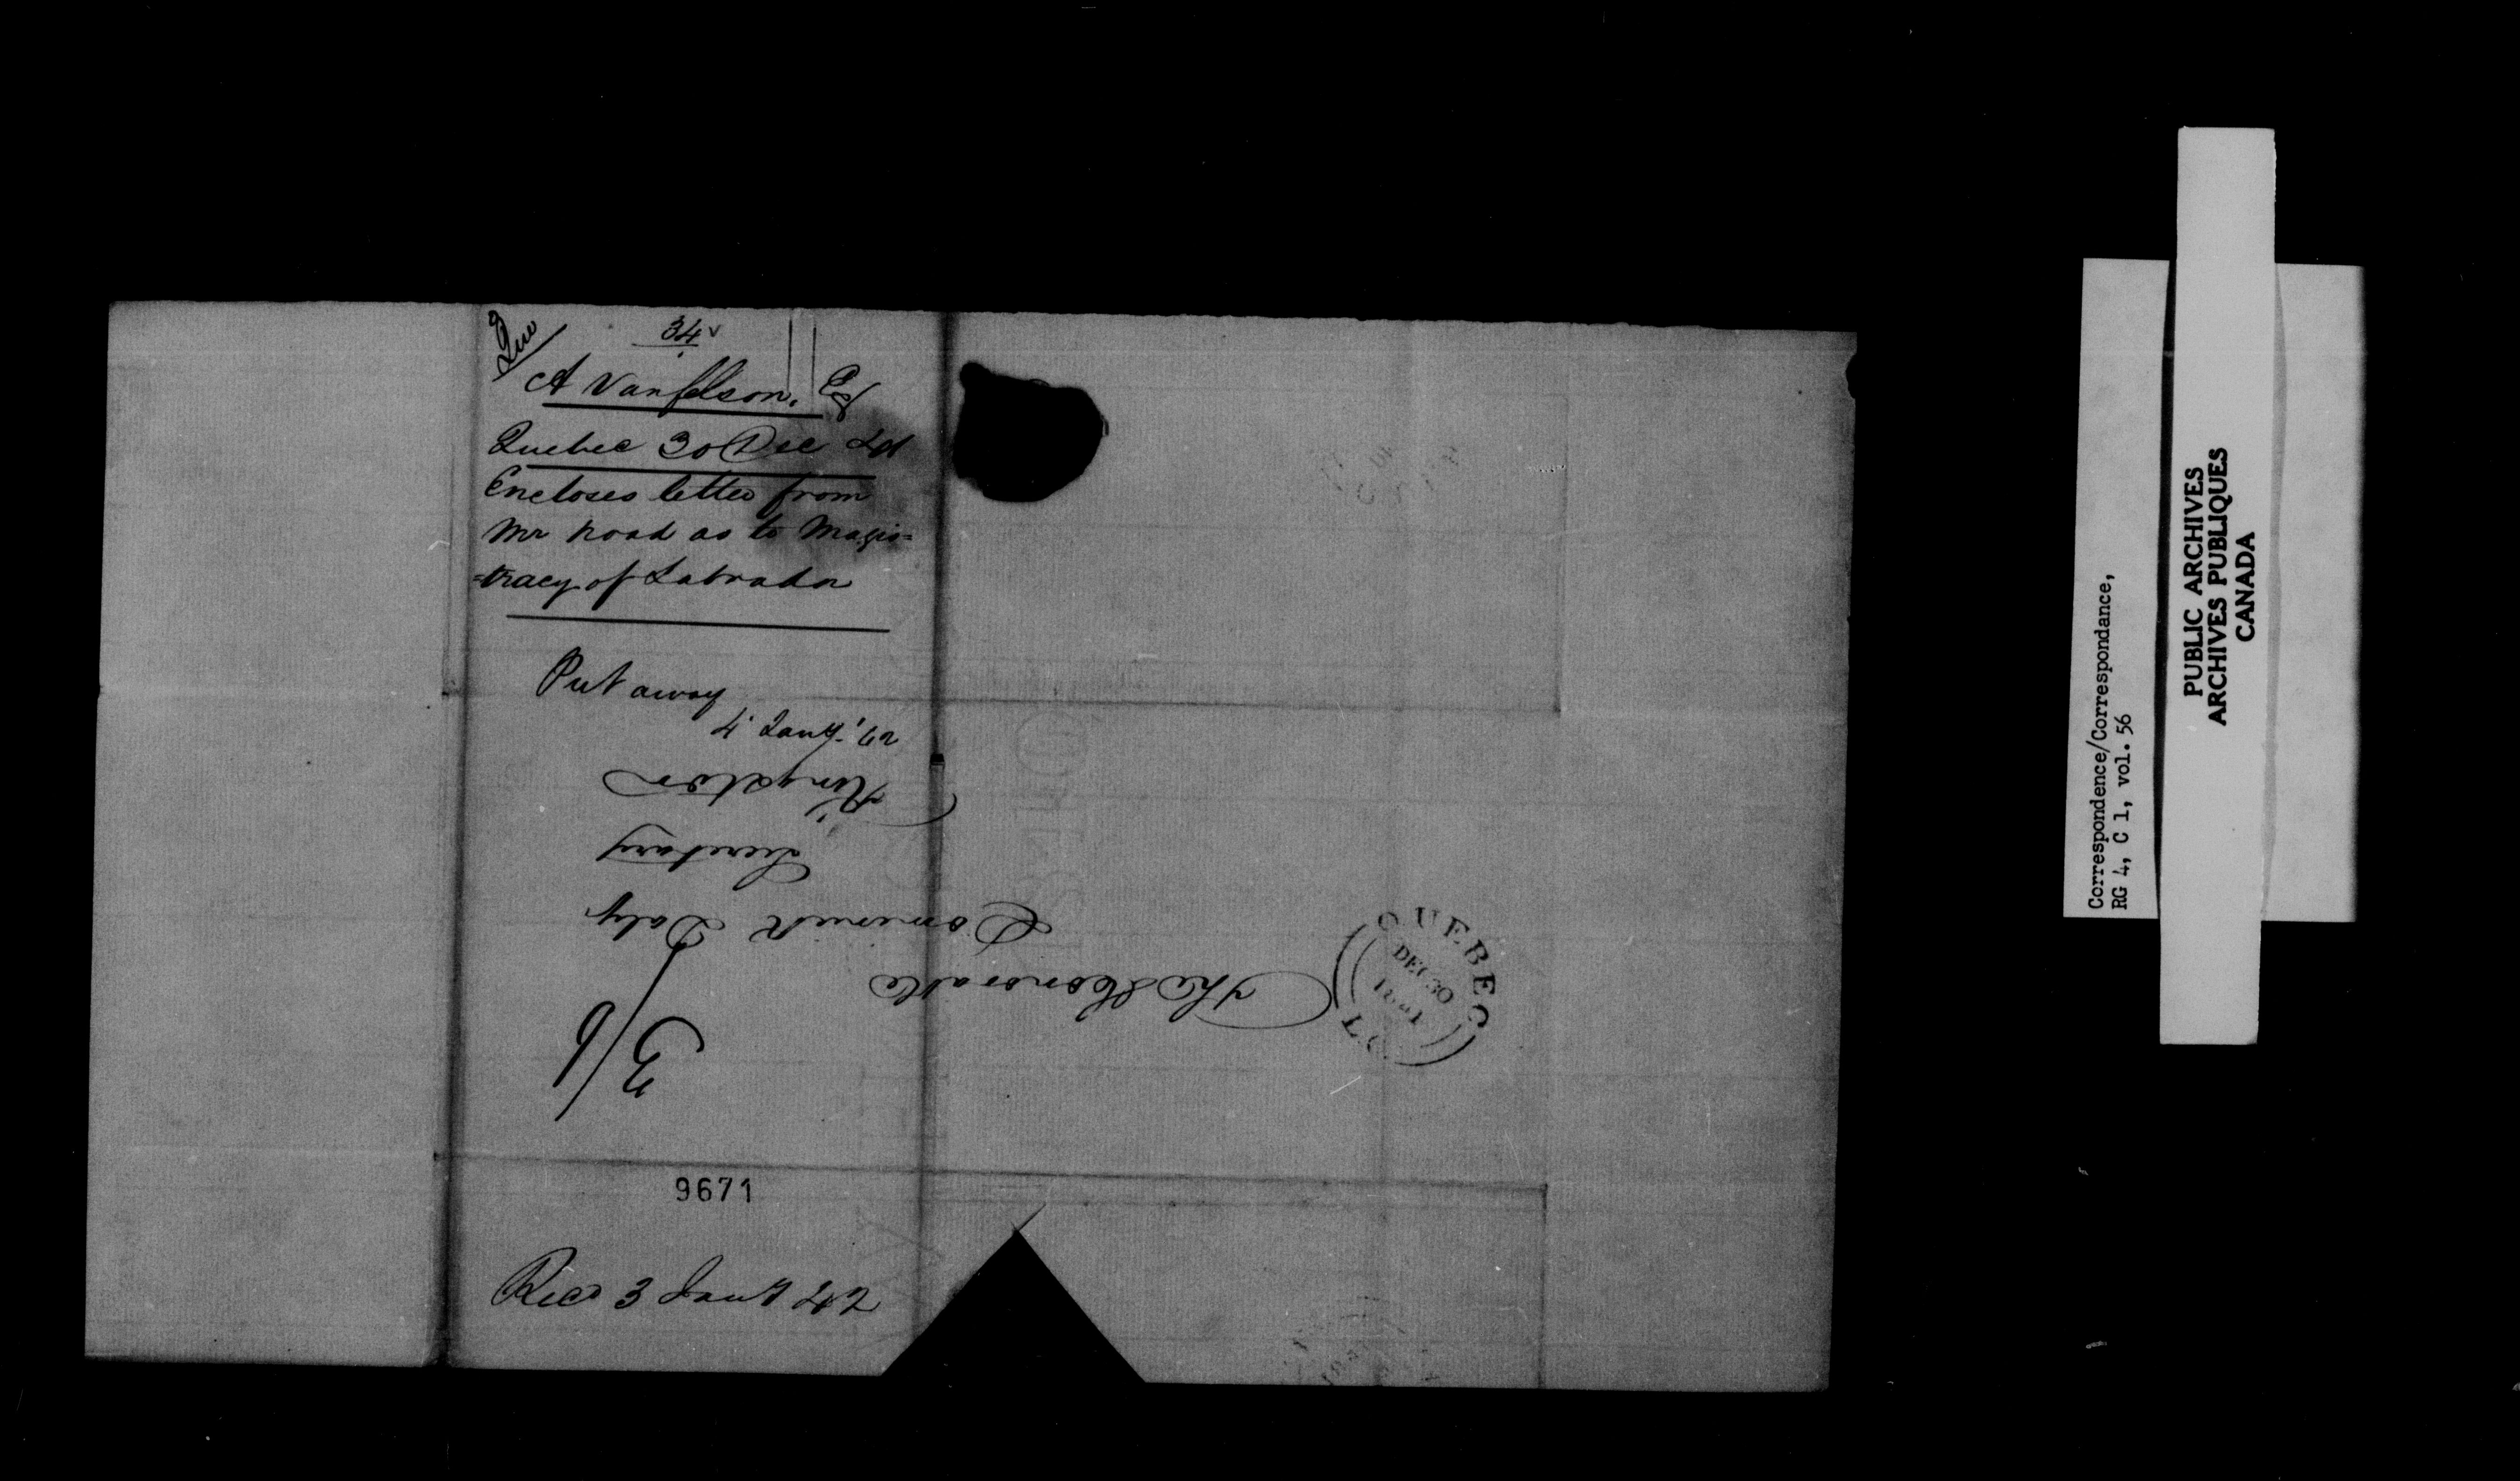 Que
34
A Vanfelson, Esq
Quebec 30 Dec 41
Encloses letter from
Mr Road as to Magis=
=tracy of Labrador
Put away
4 Jany. '42
The Honorable
Dominick Daly
Secretary
Kingston
3/6
QUEBEC
DEC 30
1841
L.C.
9671
Recd 3 Jany 42
Correspondence/Correspondance,
RG 4, C 1, vol. 56
PUBLIC ARCHIVES
ARCHIVES PUBLIQUES
CANADA